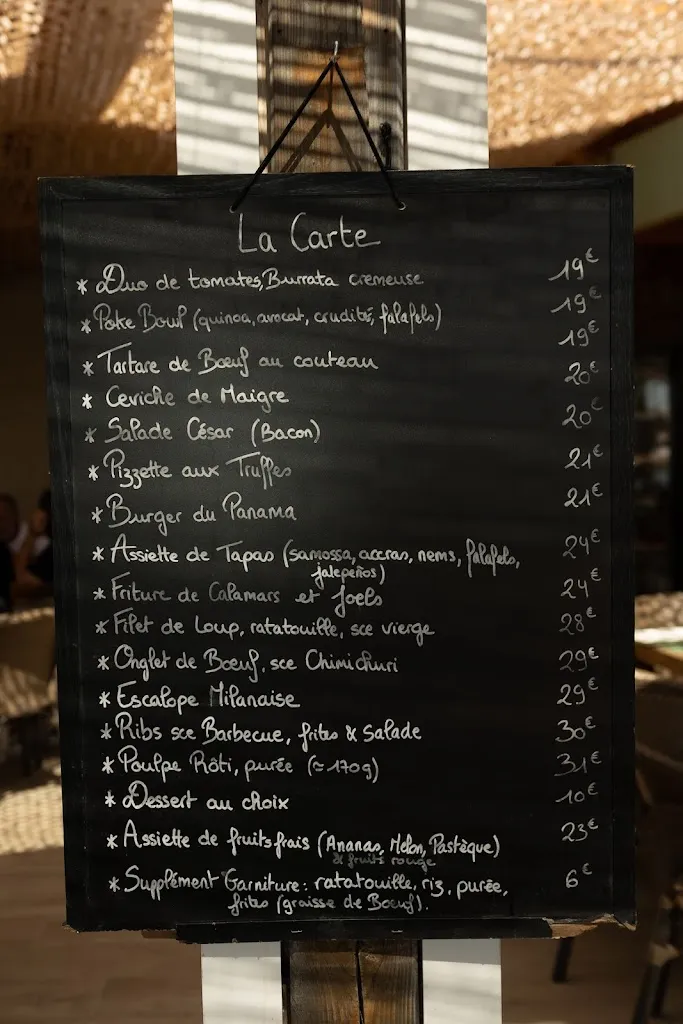 La Carte
* Duo de tomates, Burrata crémeuse 19€
* Poke Bowl (quinoa, avocat, crudité, falafels) 19€
* Tartare de Bœuf au couteau 19€
* Ceviche de Maigre 20€
* Salade César (Bacon) 20€
* Pizzette aux Truffes 21€
* Burger du Panama 21€
* Assiette de Tapas (samossa, accras, nems, falafels, 24€
jalepeños)
* Friture de Calamars et Joels 24€
* Filet de Loup, ratatouille, sce vierge 28€
* Onglet de Bœuf, sce Chimichuri 29€
* Escalope Milanaise 29€
* Ribs sce Barbecue, frites & Salade 30€
* Poulpe Rôti, purée (≈170g) 31€
* Dessert au choix 10€
* Assiette de fruits frais (Ananas, Melon, Pastèque) 23€
& fruits rouge
* Supplément Garniture : ratatouille, riz, purée, 6€
frites (graisse de Bœuf).